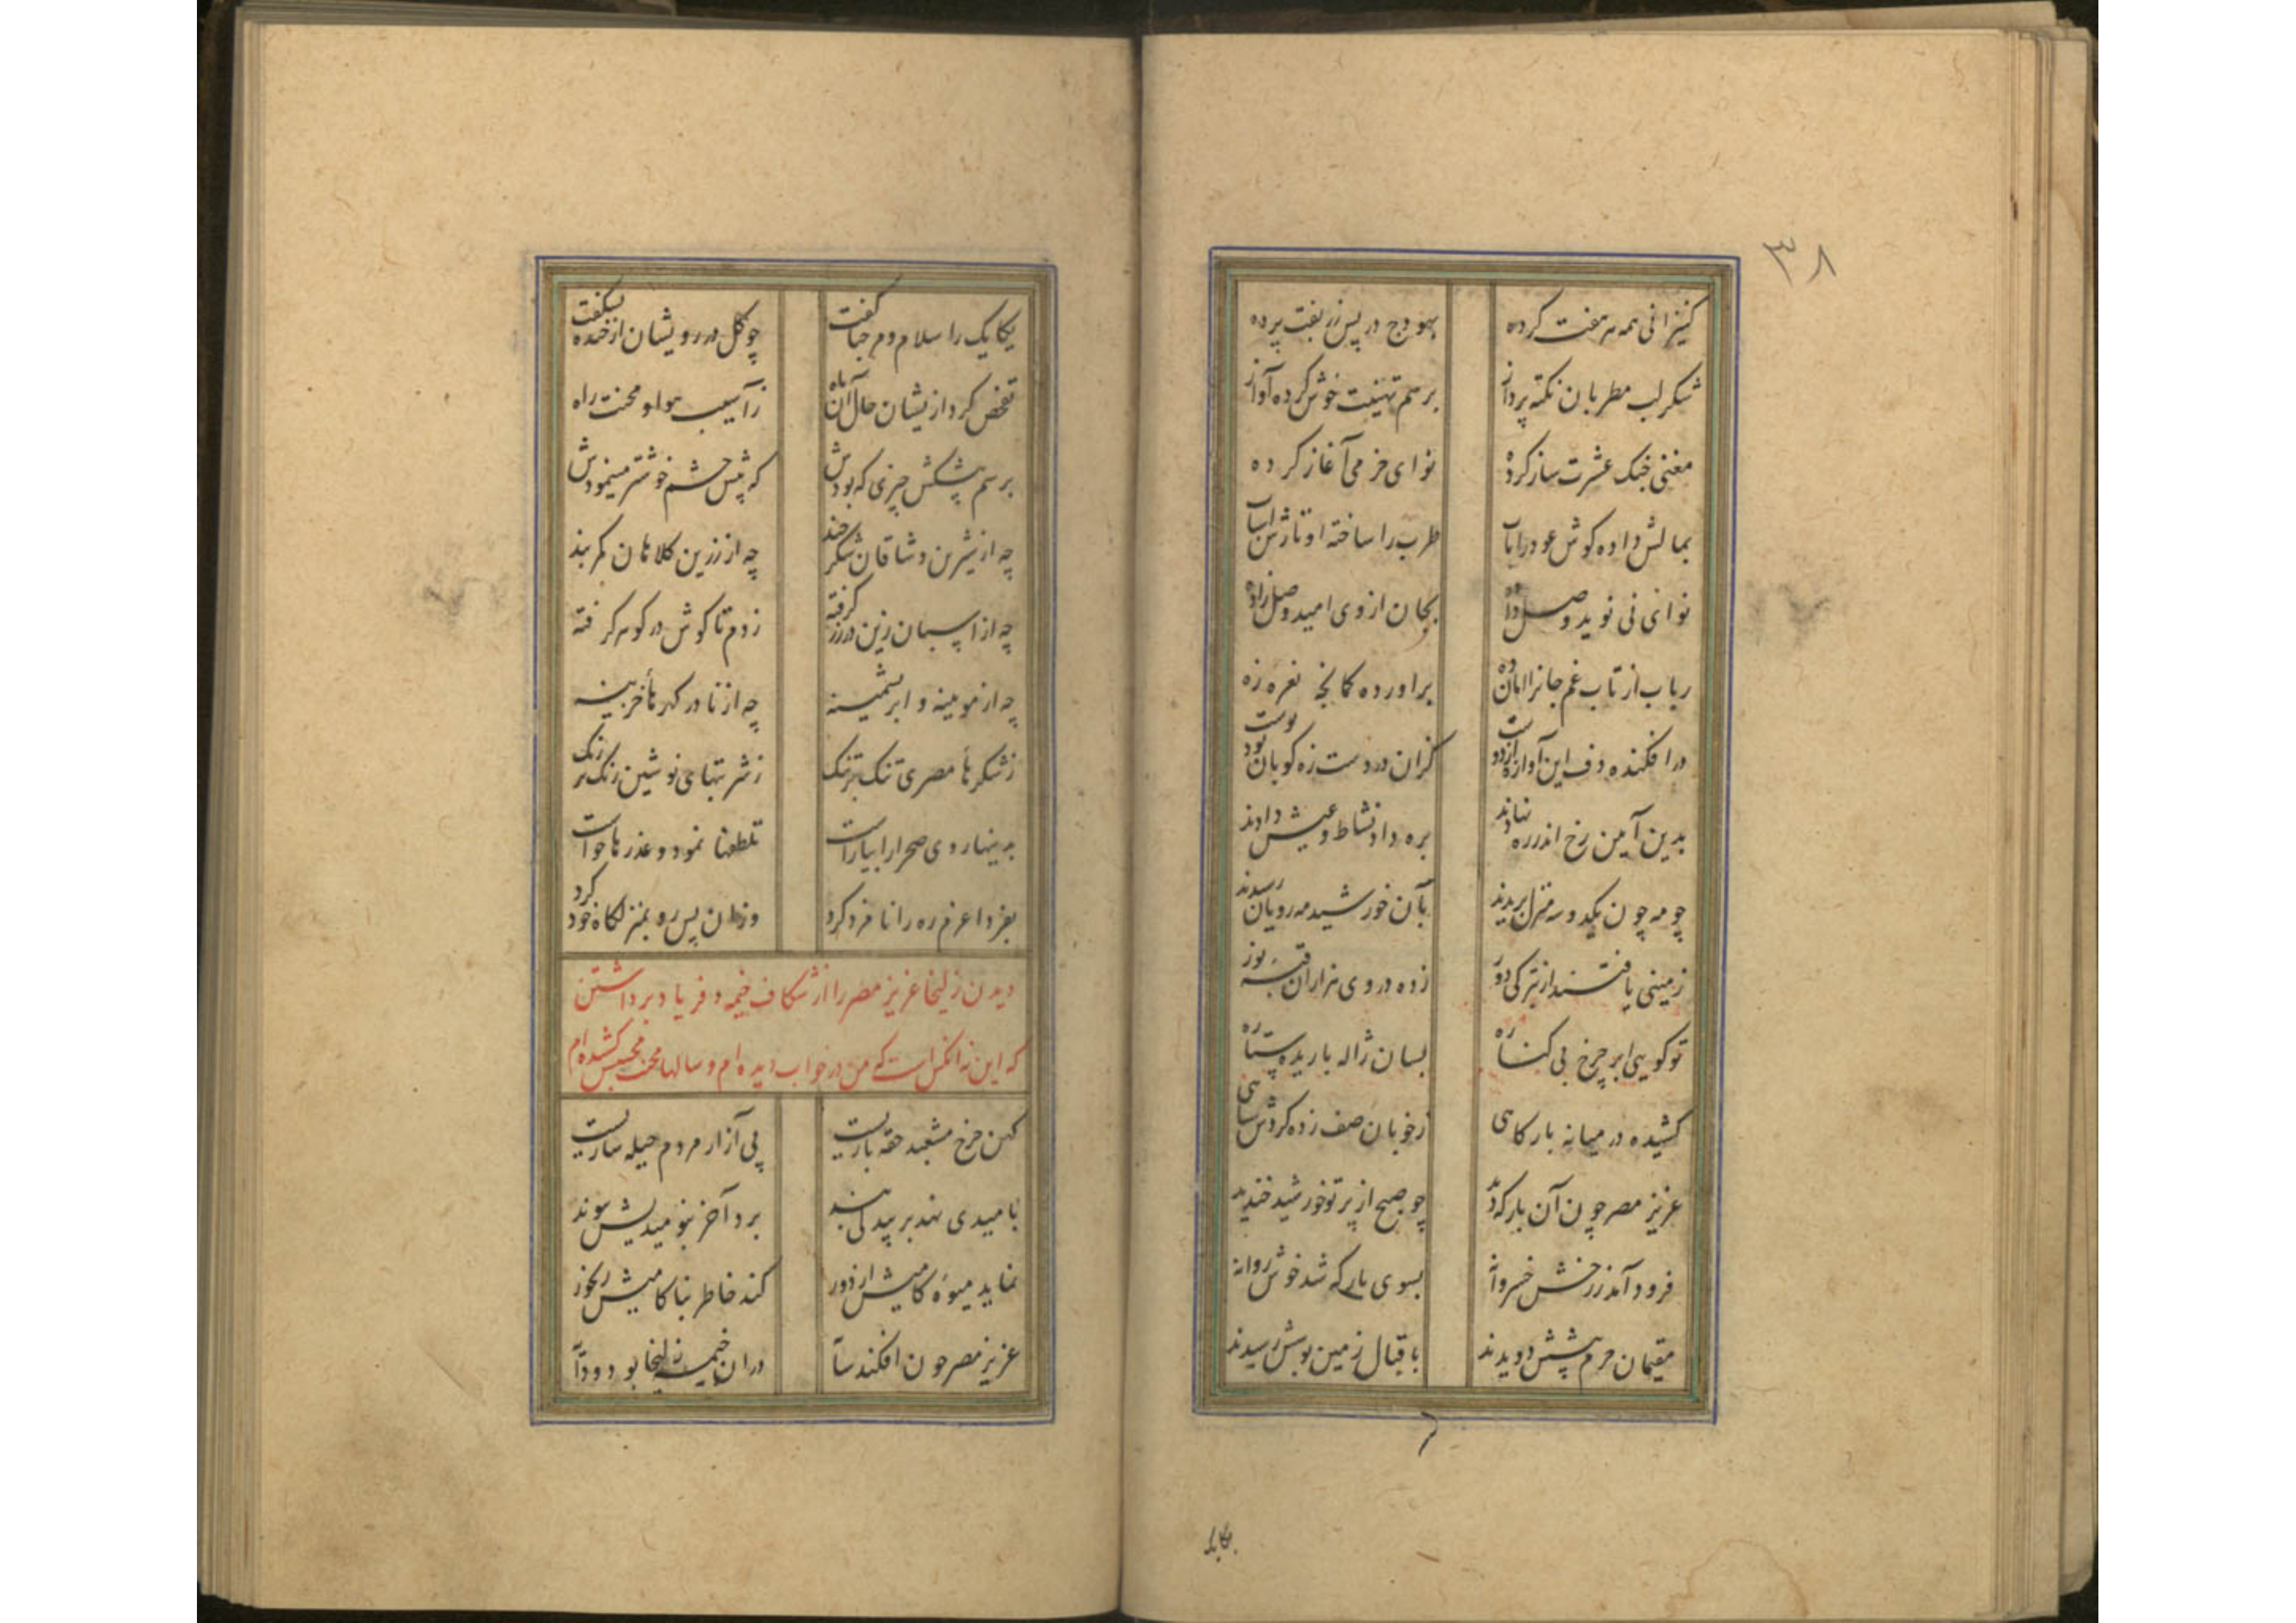 ۳۸
کنیزانی همه هر هفت کرده بهودج در پس زربفت پرده
شکر لب مطربان نکته پرداز برسم تهنیت خوش کرده آواز
مغنی چنک عشرت ساز کرده نوای خرمی آغاز کرده
بمالش داده کوش عود را تاب طرب را ساخته اوتارش اسباب
نوای نی نوید وصل داده بجان از وی امید وصل زاده
رباب از تاب غم جانرا امان ده براورده کمانچه نعره زه
در افکنده دف این آوازه از دوست کزان در دست زه کوبان بود پوست
بدین آیین رخ اندر ره نهادند بره داد نشاط و عیش دادند
چو مه چون یکدو سه منزل بریدند بآن خورشید مه رویان رسیدند
زمینی یافتند از تیرکی دور زده در وی هزاران قبه نور
تو کویی ابر چرخ بی کناره بسان ژاله باریده ستاره
کشیده در میانه بارکاهی ز خوبان صف زده کردش سپاهی
عزیز مصر چون آن بارکه دید چو صبح از پرتو خورشید خندید
فرود آمد ز رخش خسروانه بسوی بارکه شد خوش روانه
مقیمان حرم پیشش دویدند باقبال زمین بوسش رسیدند
یکایک
یکایک را سلام و مرحبا کفت چو کل در رویشان از خنده بشکفت
تفحص کرد ازیشان حال آن ماه ز آسیب هوا و محنت راه
برسم پیشکش چیزی که بودش که پیش چشم خوشتر مینمودش
چه از شیرین وشاقان شکر خند چه از زرین کلاهان کمر بند
چه از اسپان زین در زر کرفته ز دم تا کوش در کوهر کرفته
چه از مویینه و ابریشمینه چه از نادر کهرهأ خزینه
ز شکرهأ مصری تنک بر تنک ز شربتهای نوشین رنک بر رنک
بدینها روی صحرا را بیاراست تلطفها نمود و عذرها خواست
بفردا عزم ره را نامزد کرد وزان پس رو بمنزلکاه خود کرد
دیدن زلیخا عزیز مصر را از شکاف خیمه و فریاد برداشتن
که این نه آنکس است که من در خواب دیده‌ام و سالها محنت محبتش کشیده‌ام
کهن چرخ مشعبد حقه بازیست پی آزار مردم حیله سازیست
بامیدی نهد بر بیدلی بند برد آخر بنومیدیش پیوند
نماید میوه کامیش از دور کند خاطر بناکامیش رنجور
عزیز مصر چون افکند سایه دران خیمه زلیخا بود و دایه